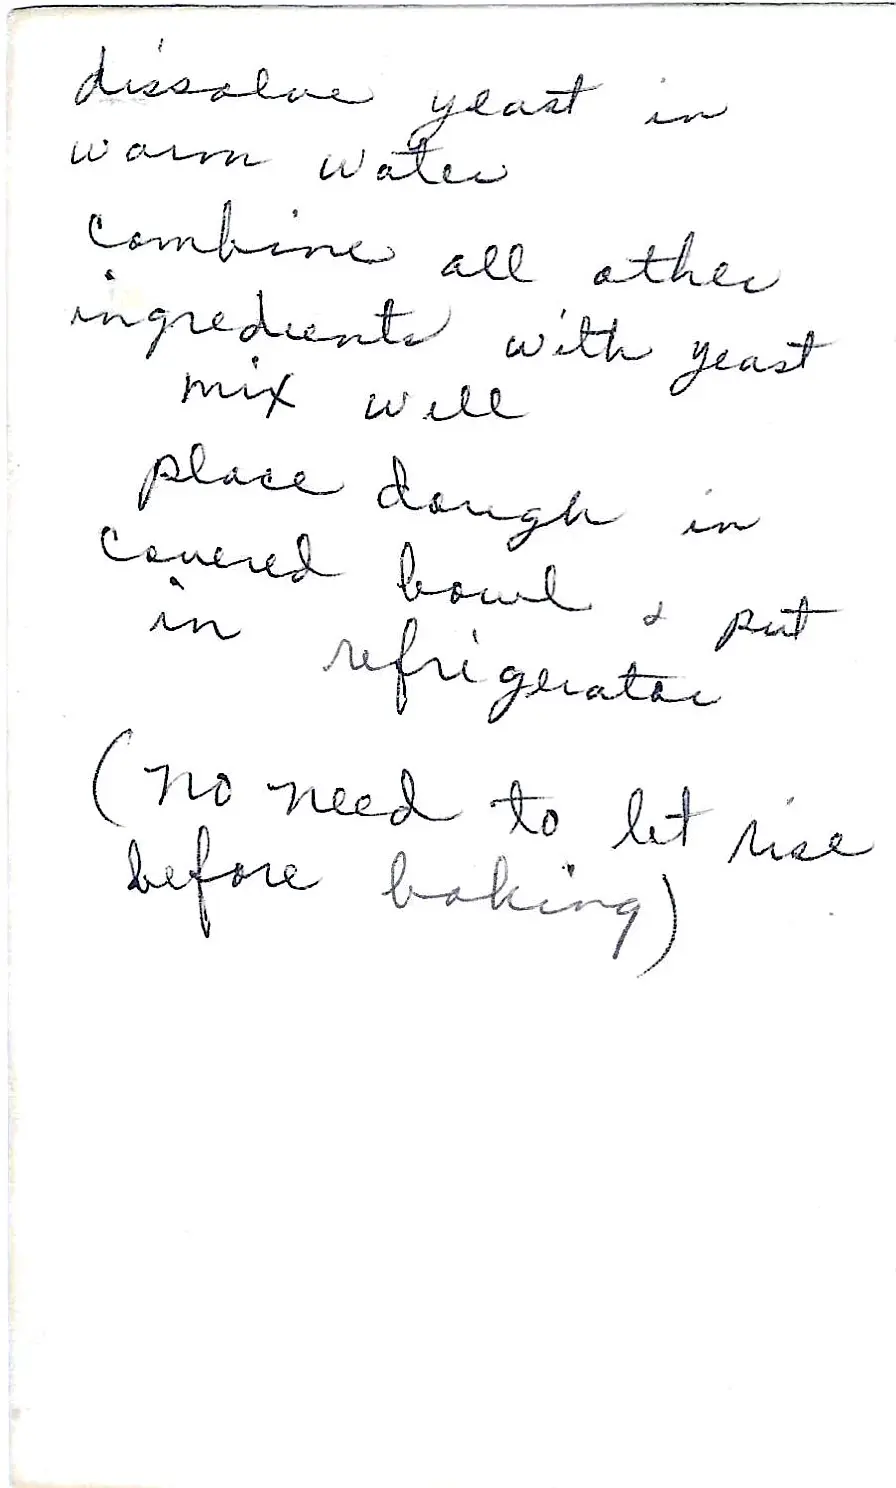 dissolve yeast in
warm water
Combine all other
ingredients with yeast
mix well
place dough in
covered bowl & put
in refrigerator
(no need to let rise
before baking)